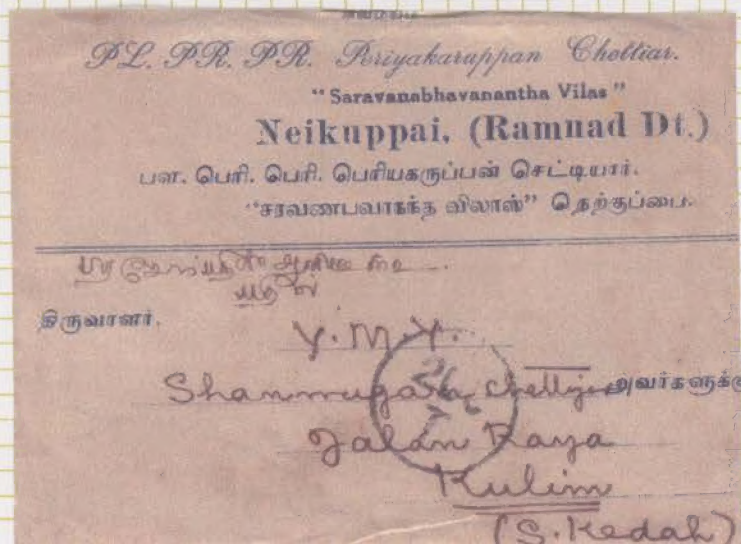 PL. PR. PR. Periyakaruppan Chettiar.
"Saravanabhavanantha Vilas"
Neikuppai, (Ramnad Dt.)
பள. பெரி. பெரி. பெரியகருப்பன் செட்டியார்.
"சரவணபவாநந்த விலாஸ்" நெற்குப்பை.
திருவாளர்.
V. M. Y.
Shanmuga Chettiyar அவர்களுக்கு
Jalan Raya
Kulim
(S. Kedah)